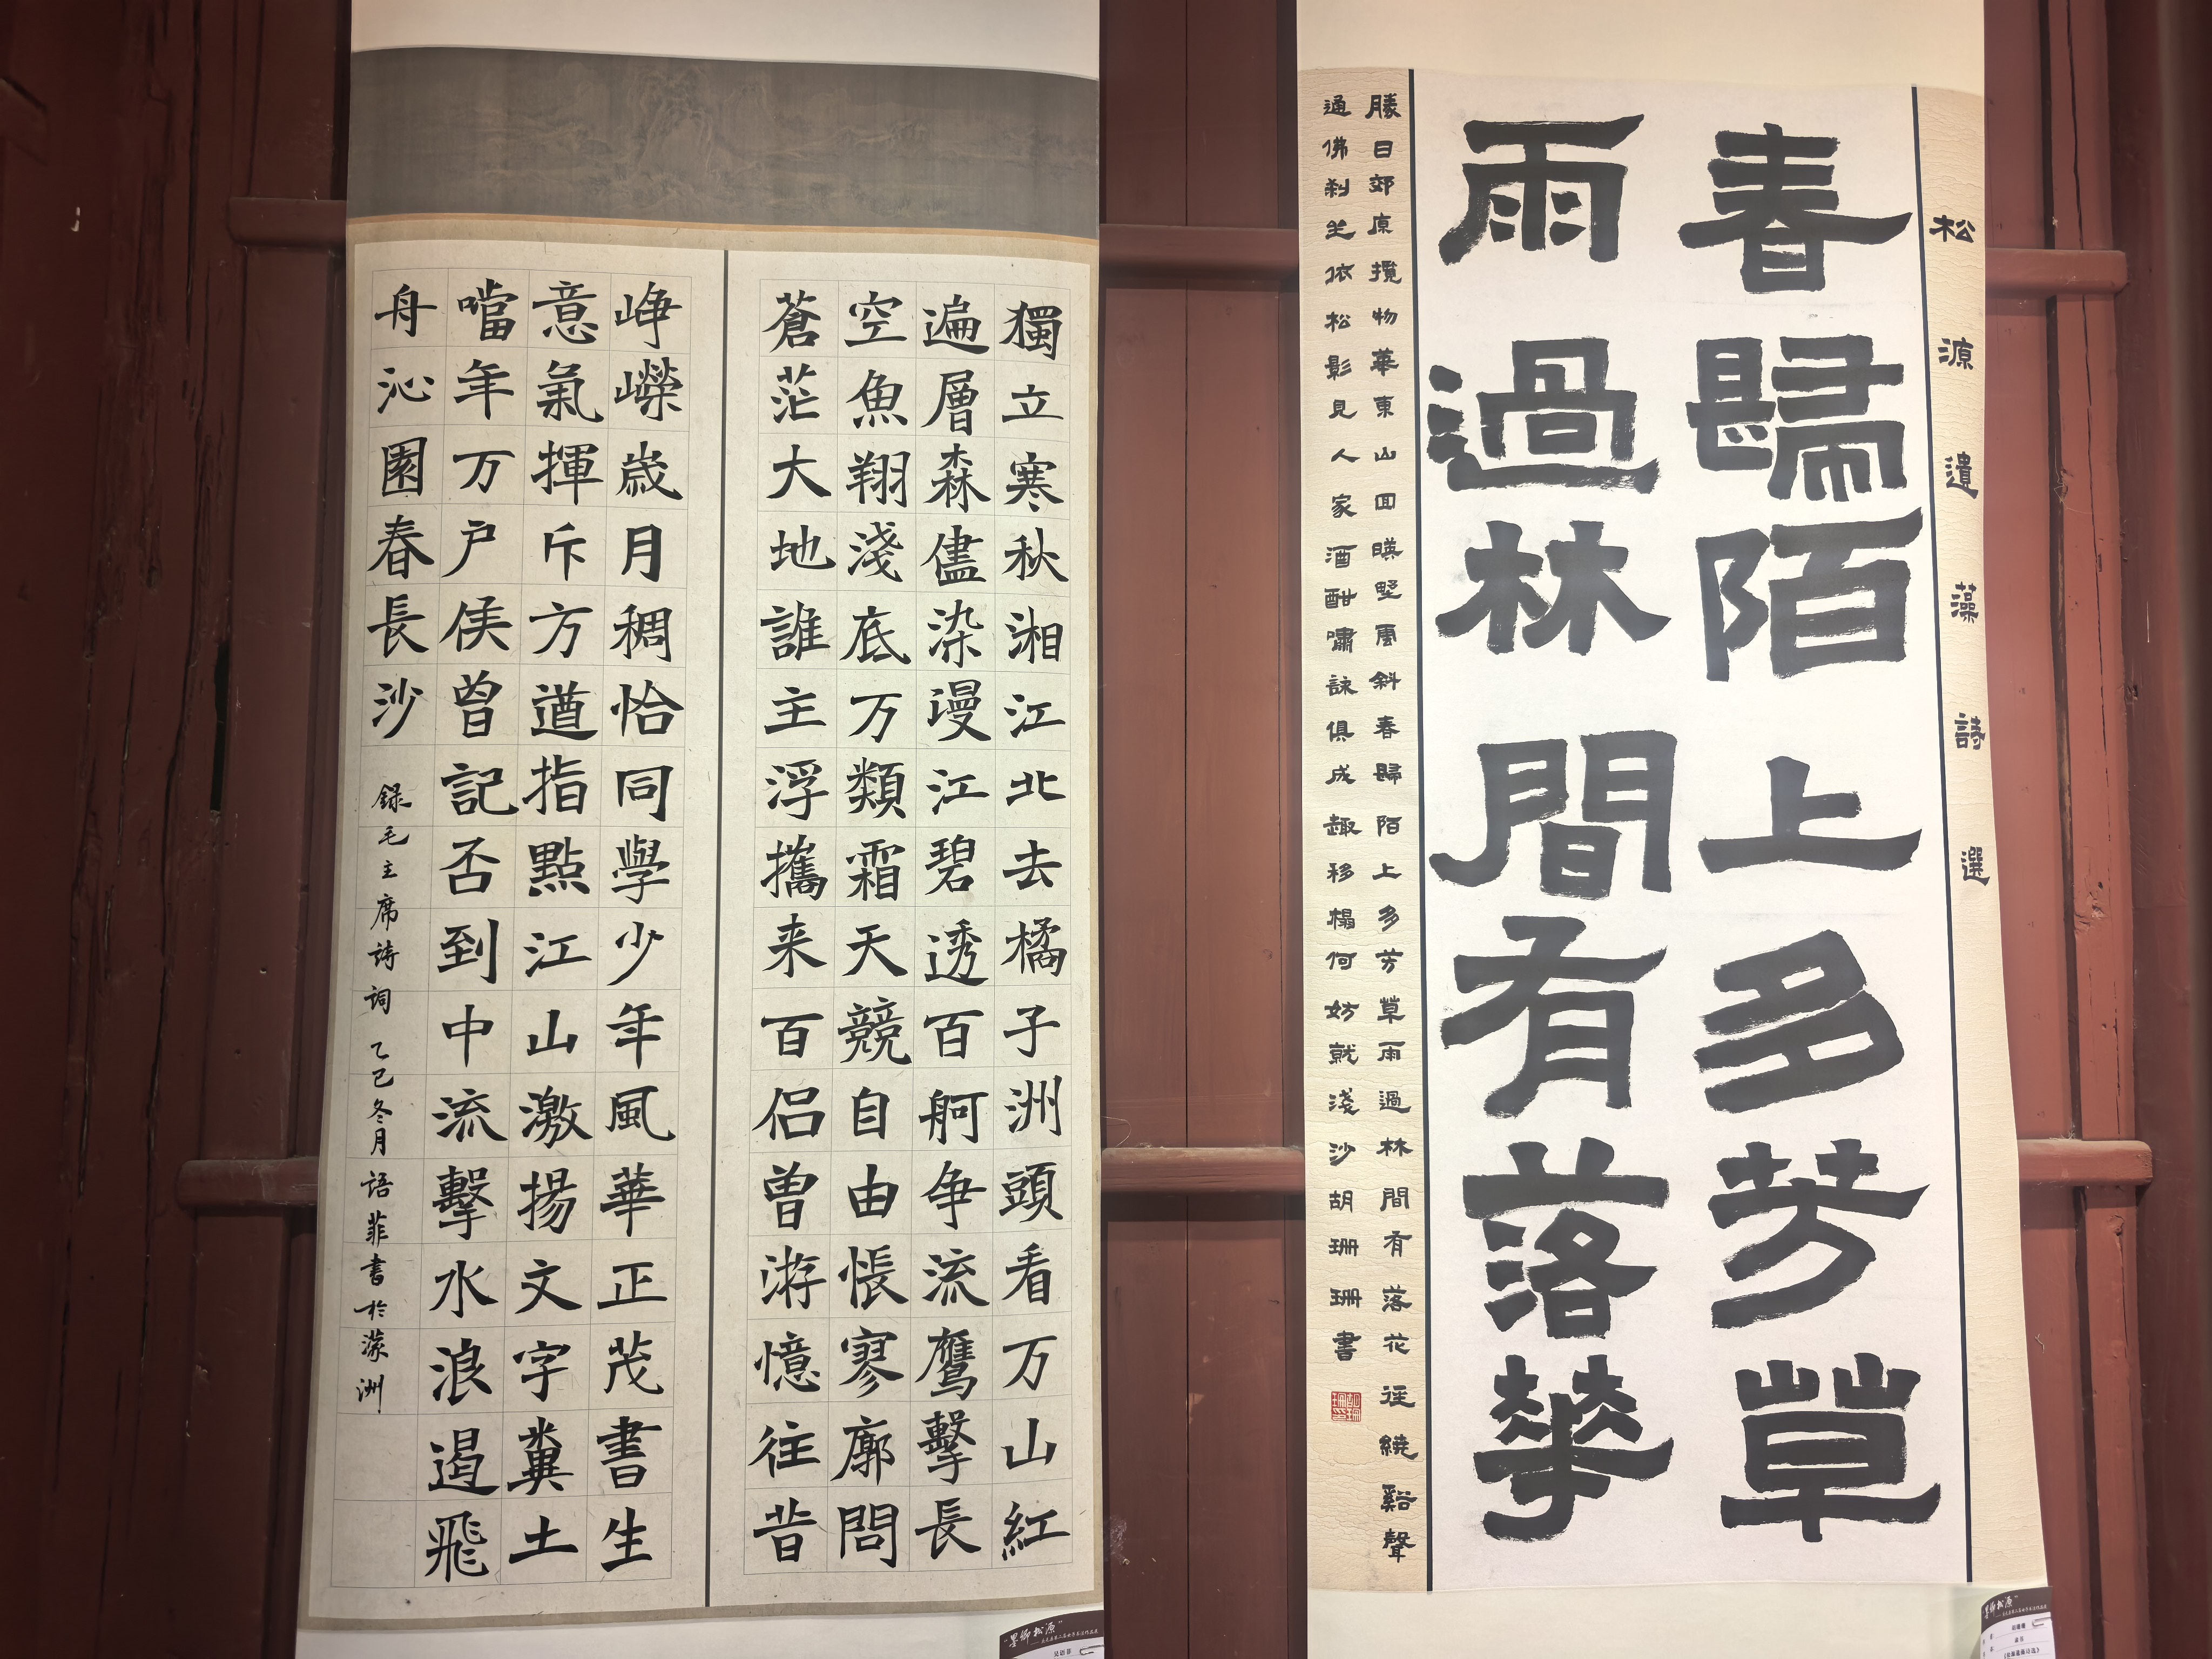 松源遺藻詩選
春歸陌上多芳草
雨過林間有落華
勝日郊原攬物華東山回暎墅風斜春歸陌上多芳草雨過林間有落花徑繞谿聲
通佛刹坐依松影見人家酒酣嘯詠俱成趣移榻何妨就淺沙胡珊珊書
獨立寒秋湘江北去橘子洲頭看万山紅
遍層森儘染漫江碧透百舸争流鹰擊長
空魚翔淺底万類霜天競自由悵寥廓問
蒼茫大地誰主浮攜来百侣曾游憶往昔
崢嶸歲月稠恰同學少年風華正茂書生
意氣揮斥方遒指點江山激揚文字糞土
噹年万户侯曾記否到中流擊水浪遏飛
舟沁園春長沙
録毛主席詩詞 乙巳冬月语菲書於濠洲
“墨鄉松源”
吴语菲
“墨鄉松源”